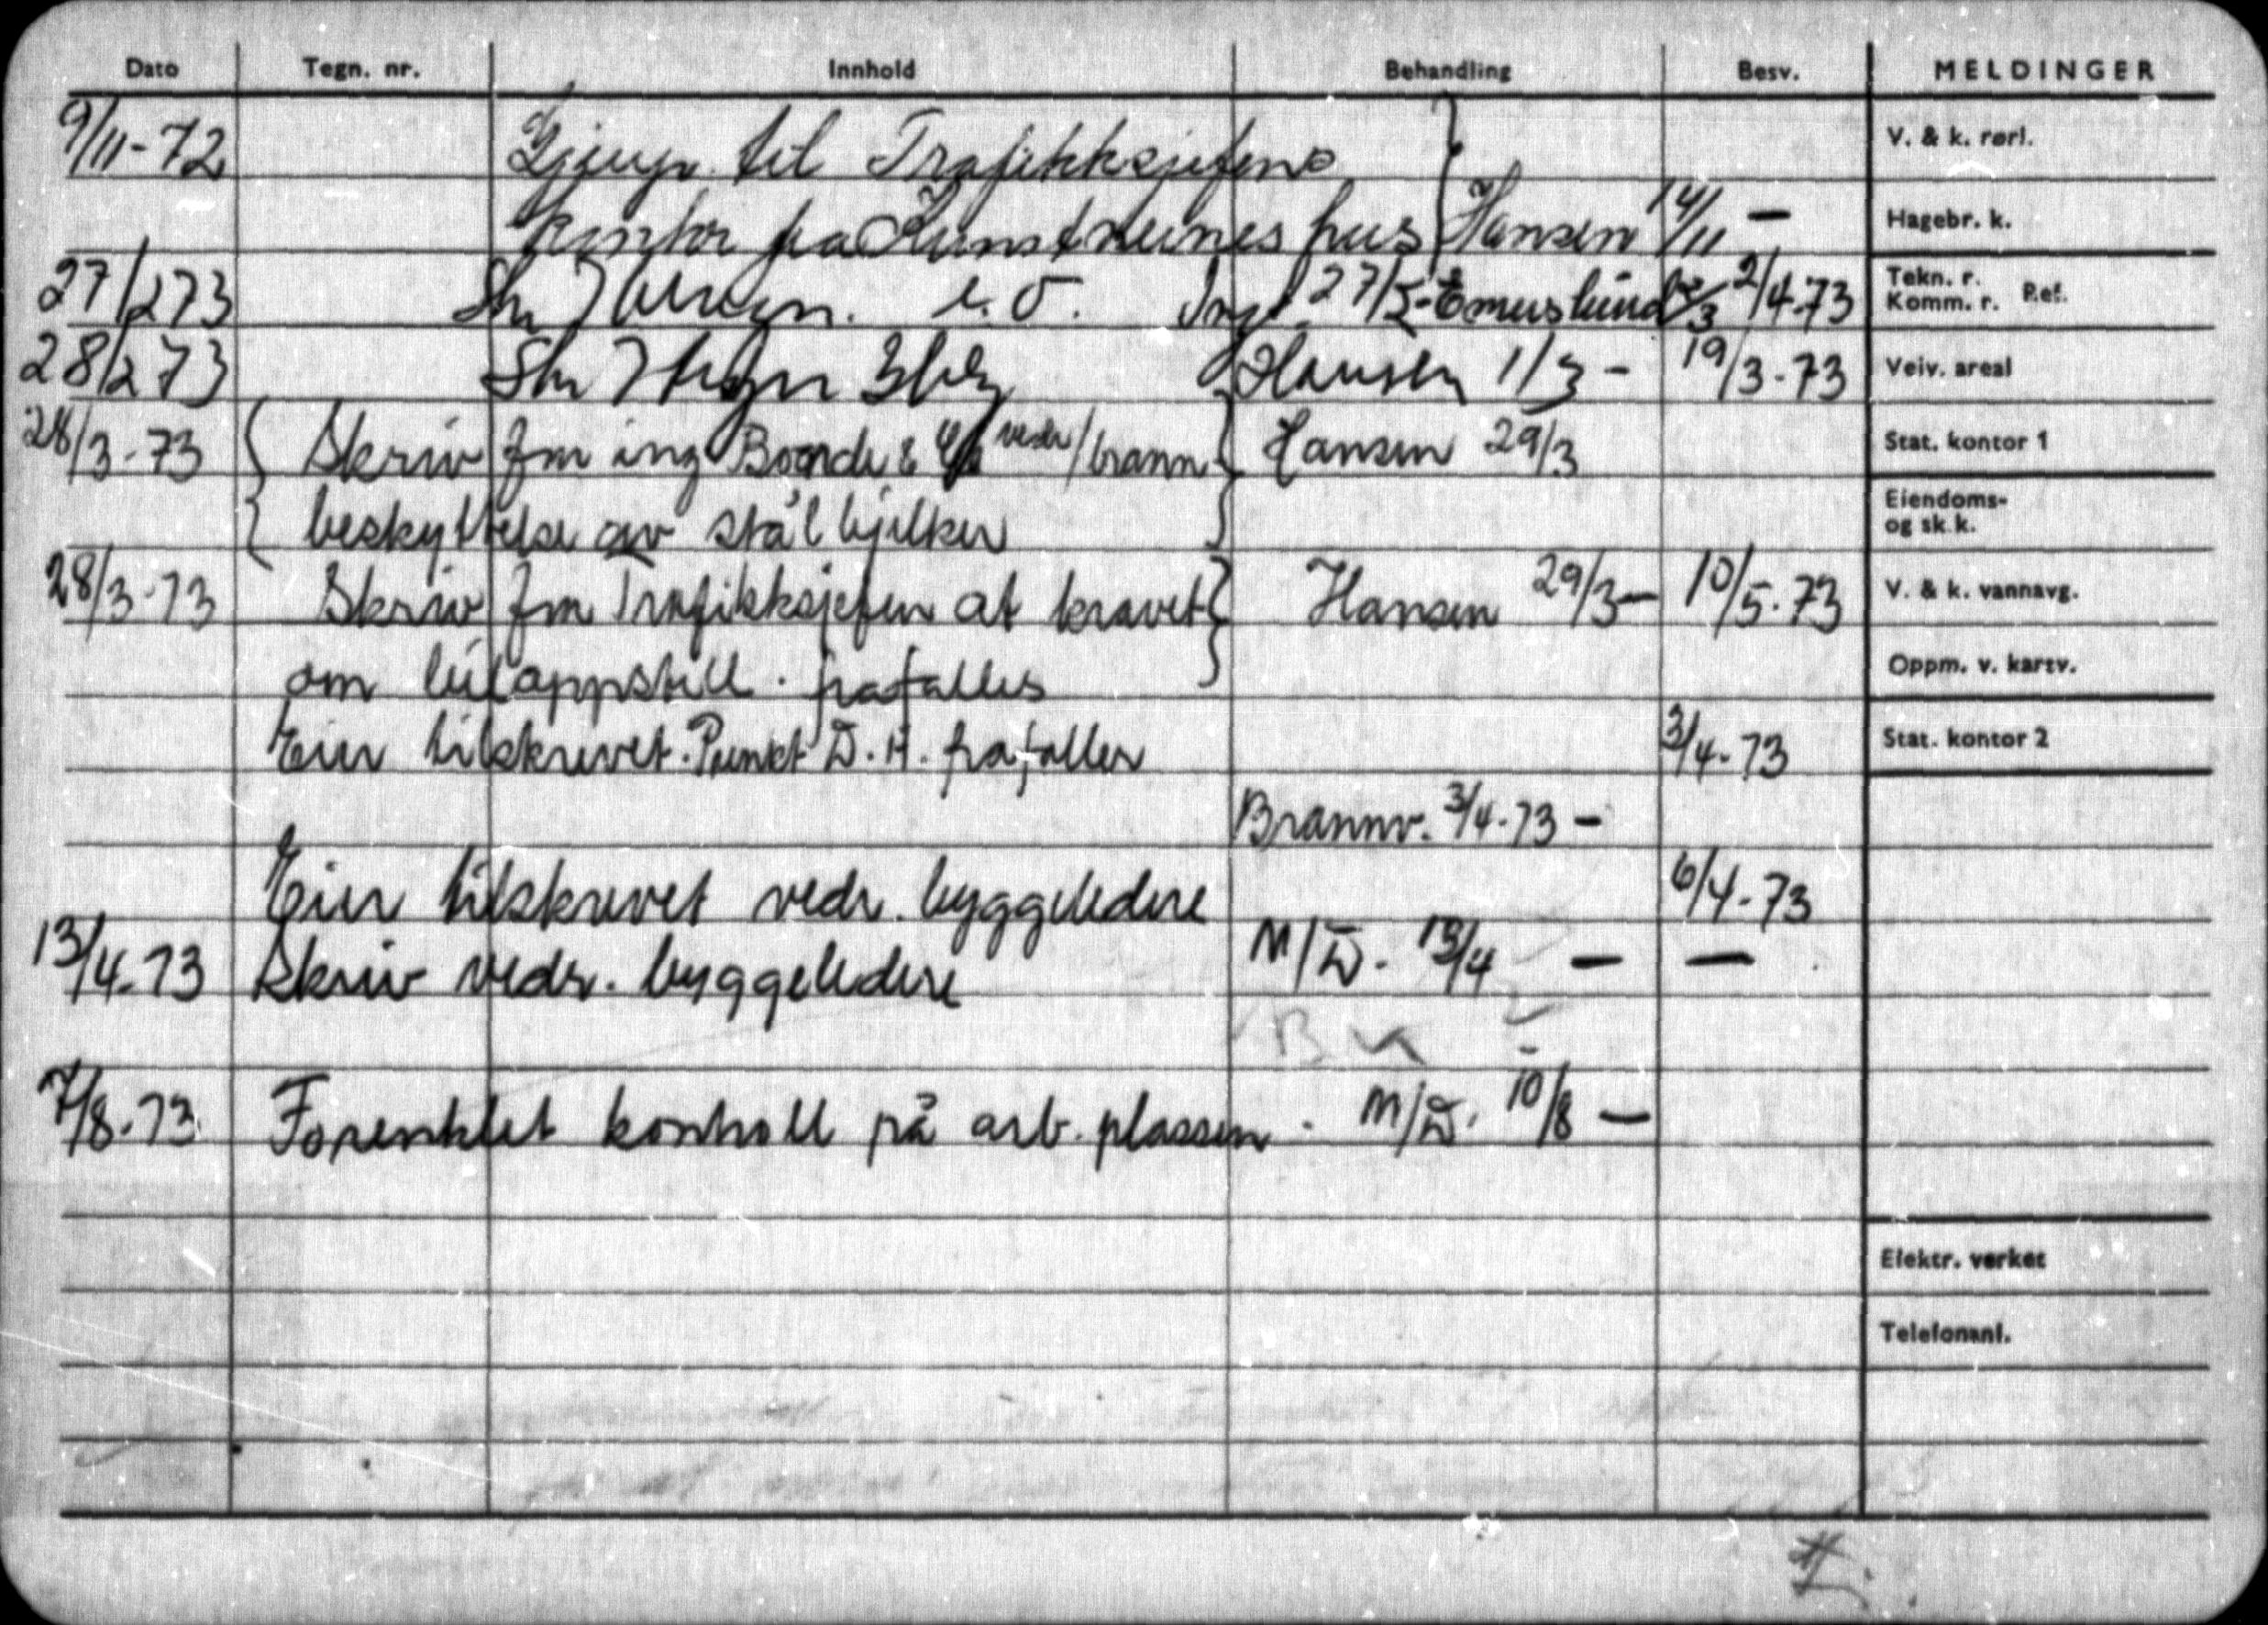 Dato Tegn. nr. Innhold Behandling Besv. MELDINGER
9/11-72 til Trafikksjefens V. & k. rørl.
kontor fra Kunstnernes hus Hansen 14/11 — Hagebr. k.
27/2 73 Skr 27/2- 2/4-73 Tekn. r. Komm. r. Ref.
28/2 73 Skr Hansen 1/3 - 19/3-73 Veiv. areal
28/3-73 Skriv fra ing vedr brann Hansen 29/3 Stat. kontor 1
beskyttelse av stålbjelker Eiendoms- og sk.k.
28/3-73 Skriv fra Trafikksjefen at kravet Hansen 29/3— 10/5-73 V. & k. vannavg.
om biloppstill. frafalles Oppm. v. kartv.
Eier tilskrevet. Punkt D. H. frafaller 3/4-73 Stat. kontor 2
Brannv. 3/4-73 -
Eier tilskrevet vedr. byggeledere 6/4-73
13/4-73 Skriv vedr. byggeledere M/D. 13/4 — —
7/8-73 Forenklet kontroll på arb. plassen. M/D. 10/8 —
Elektr. verket
Telefonanl.